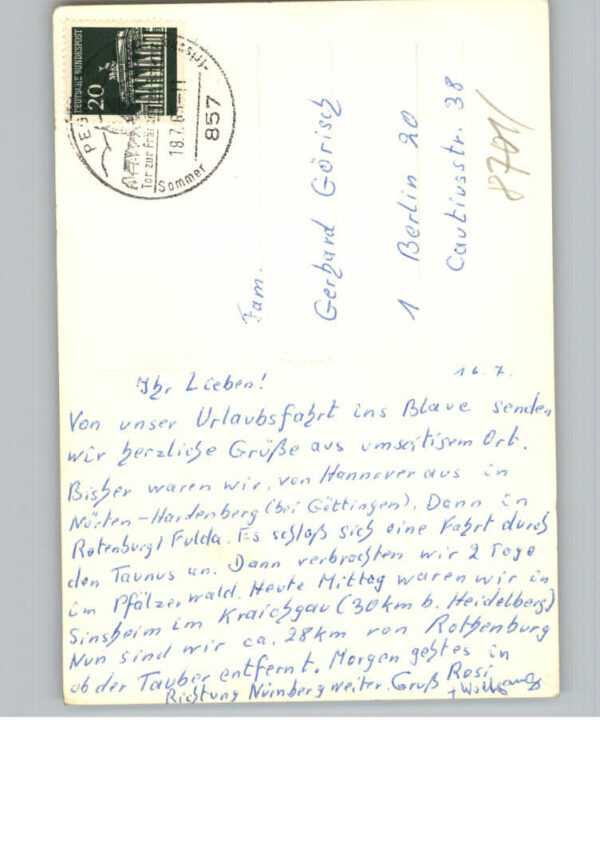 DEUTSCHE BUNDESPOST
20
PEG
Tor zur Frän
18.7.6
11
Sommer
857
Fam.
Gerhard Görisch
1 Berlin 20
Cautiusstr. 38
8701/
16.7.
Ihr Lieben!
Von unser Urlaubsfahrt ins Blaue senden
wir herzliche Grüße aus umseitigem Ort.
Bisher waren wir, von Hannover aus in
Nörten-Hardenberg (bei Göttingen). Dann in
Rotenburg/Fulda. Es schloß sich eine Fahrt durch
den Taunus an. Dann verbrachten wir 2 Tage
im Pfälzerwald. Heute Mittag waren wir in
Sinsheim im Kraichgau (30km b. Heidelberg)
Nun sind wir ca. 28km von Rothenburg
ob der Tauber entfernt. Morgen geht es in
Richtung Nürnberg weiter. Gruß Rosi
+ Wolfgang